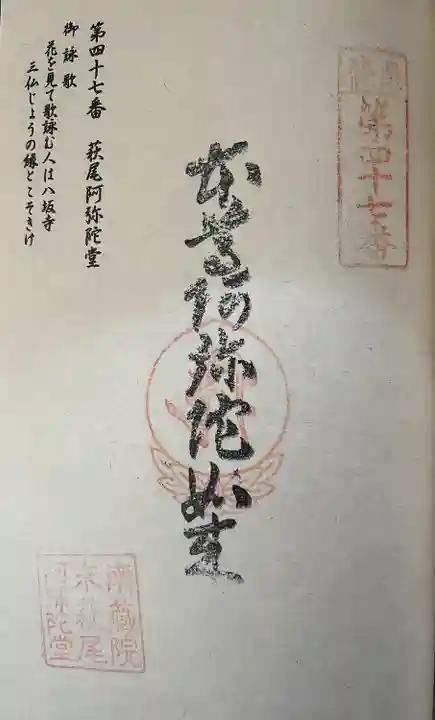 第四十七番
本尊阿弥陀如来
第四十七番　萩尾阿弥陀堂
御詠歌
花を見て歌詠む人は八坂寺
三仏じょうの縁とこそきけ
萩尾
陀堂